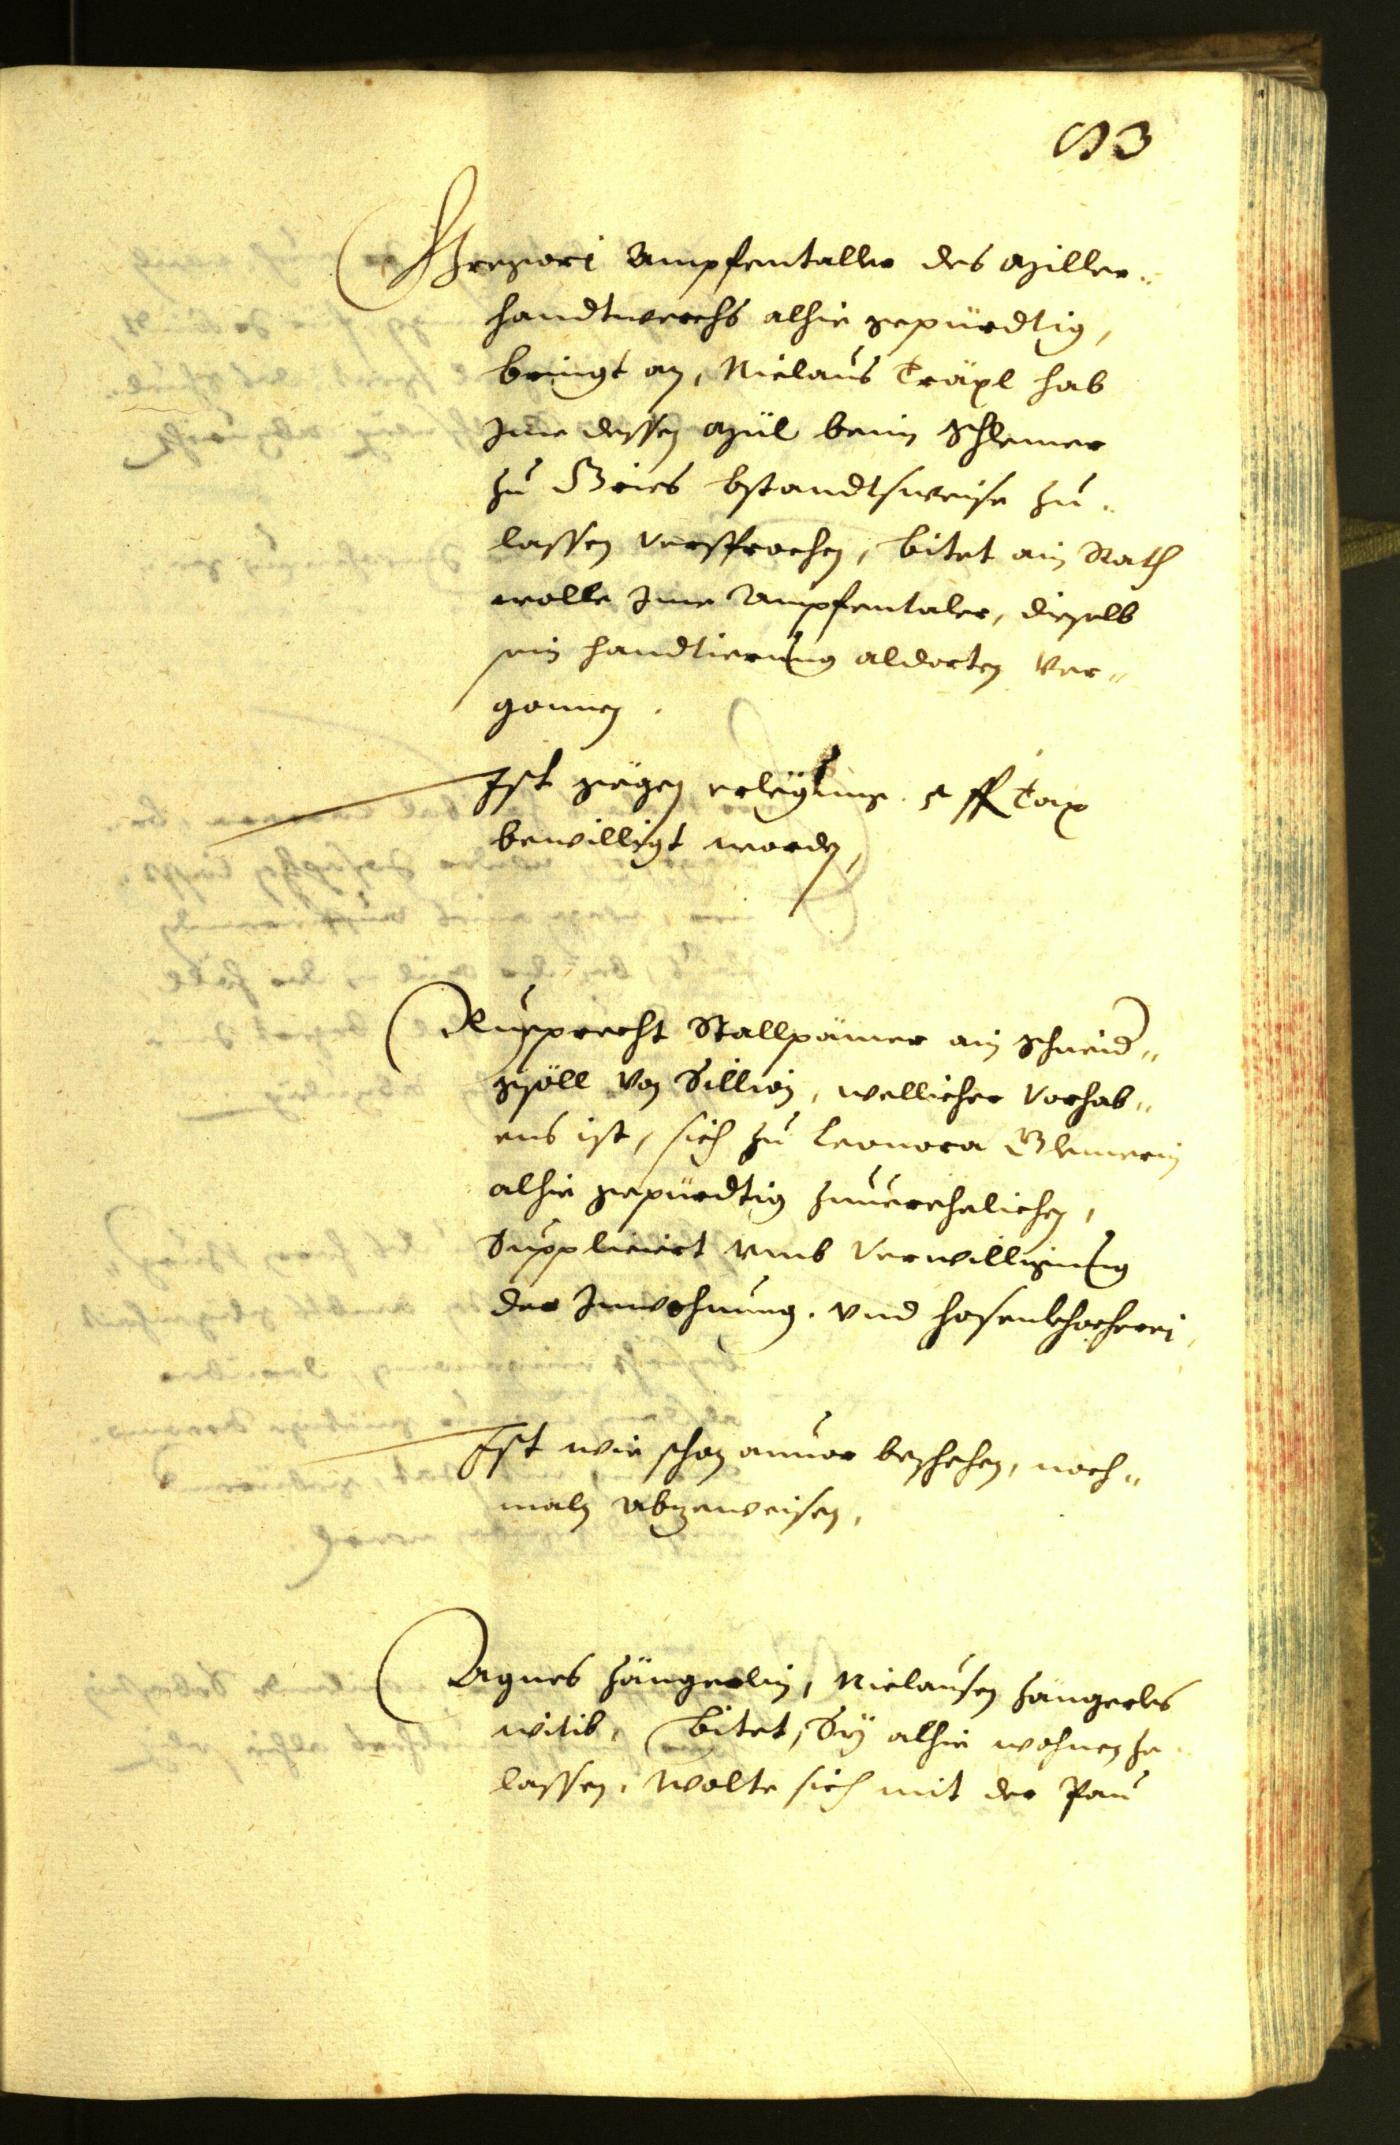 83
Gregori Ampfentaller des Miller„
handtwerchs alhie gepürdtig,
bringt an, Niclaus Träxl hab
Ime dessen Mül beim Schlemer
zu Gries bstandtsweise zu„
lassen versprochen, bitet ain Rath
wolle Ime Ampfentaler, dieselb
sein handtierung aldorten ver„
gonnen.
Ist gegen erlegung 5 fl Tax
bewilligt worden,
Rupprecht Stallpämer ain Schneid„
gsöll von Sillian, wellicher vorhab„
ens ist, sich zu Leonora
alhie gepürdtig zuuerehelichen,
Supplicirt umb verwilligung
der Inwohnung. und
Ist wie schon anuor beschehen, noch„
maln abgewisen,
Agnes Hängerlin, Niclausen Hängerles
witib, bitet, Sy alhie wohnen ze
lassen, wolte sich mit der Pau